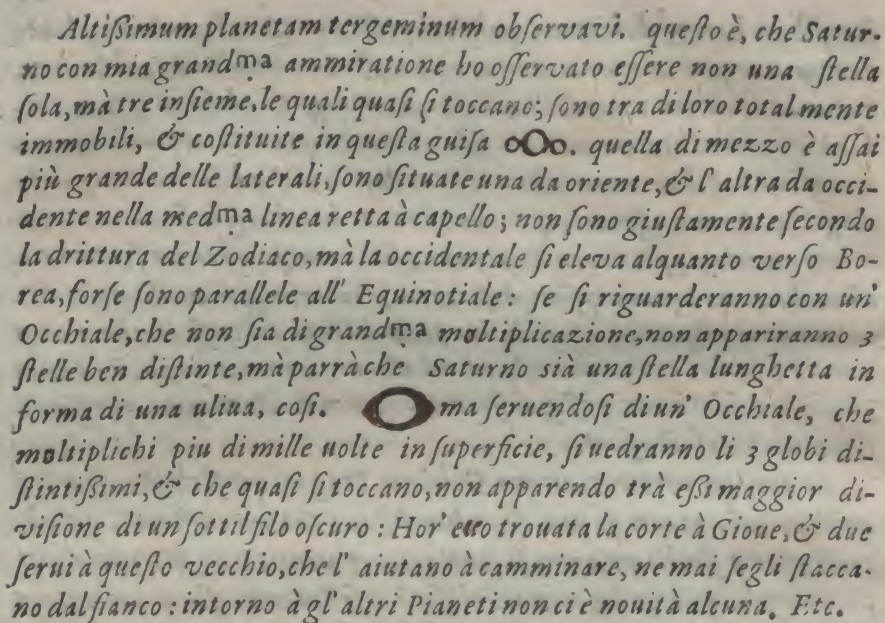 Altißimum planetam tergeminum obſervavi. queſto è, che Satur-
no con mia grandma ammiratione ho oſſervato eſſere non una ſtella
ſola, mà tre inſieme, le quali quaſi ſi toccano; ſono tra di loro total mente
immobili, & coſtituite in queſta guiſa oOo. quella di mezzo è aſſai
più grande delle laterali, ſono ſituate una da oriente, & l' altra da occi-
dente nella medma linea retta à capello; non ſono giuſtamente ſecondo
la drittura del Zodiaco, mà la occidentale ſi eleva alquanto verſo Bo-
rea, forſe ſono parallele all' Equinotiale: ſe ſi riguarderanno con un'
Occhiale, che non ſia di grandma moltiplicazione, non appariranno 3
ſtelle ben diſtinte, mà parrà che Saturno sià una ſtella lunghetta in
forma di una uliua, coſi. ma ſeruendoſi di un' Occhiale, che
moltiplichi piu di mille uolte in ſuperficie, ſi uedranno li 3 globi di-
ſtintißimi, & che quaſi ſi toccano, non apparendo trà eßi maggior di-
viſione di un ſottil filo oſcuro: Hor' ecco trouata la corte à Gioue, & due
ſerui à queſto vecchio, che l' aiutano à camminare, ne mai ſegli ſtacca-
no dal fianco: intorno à gl' altri Pianeti non ci è nouità alcuna. Etc.